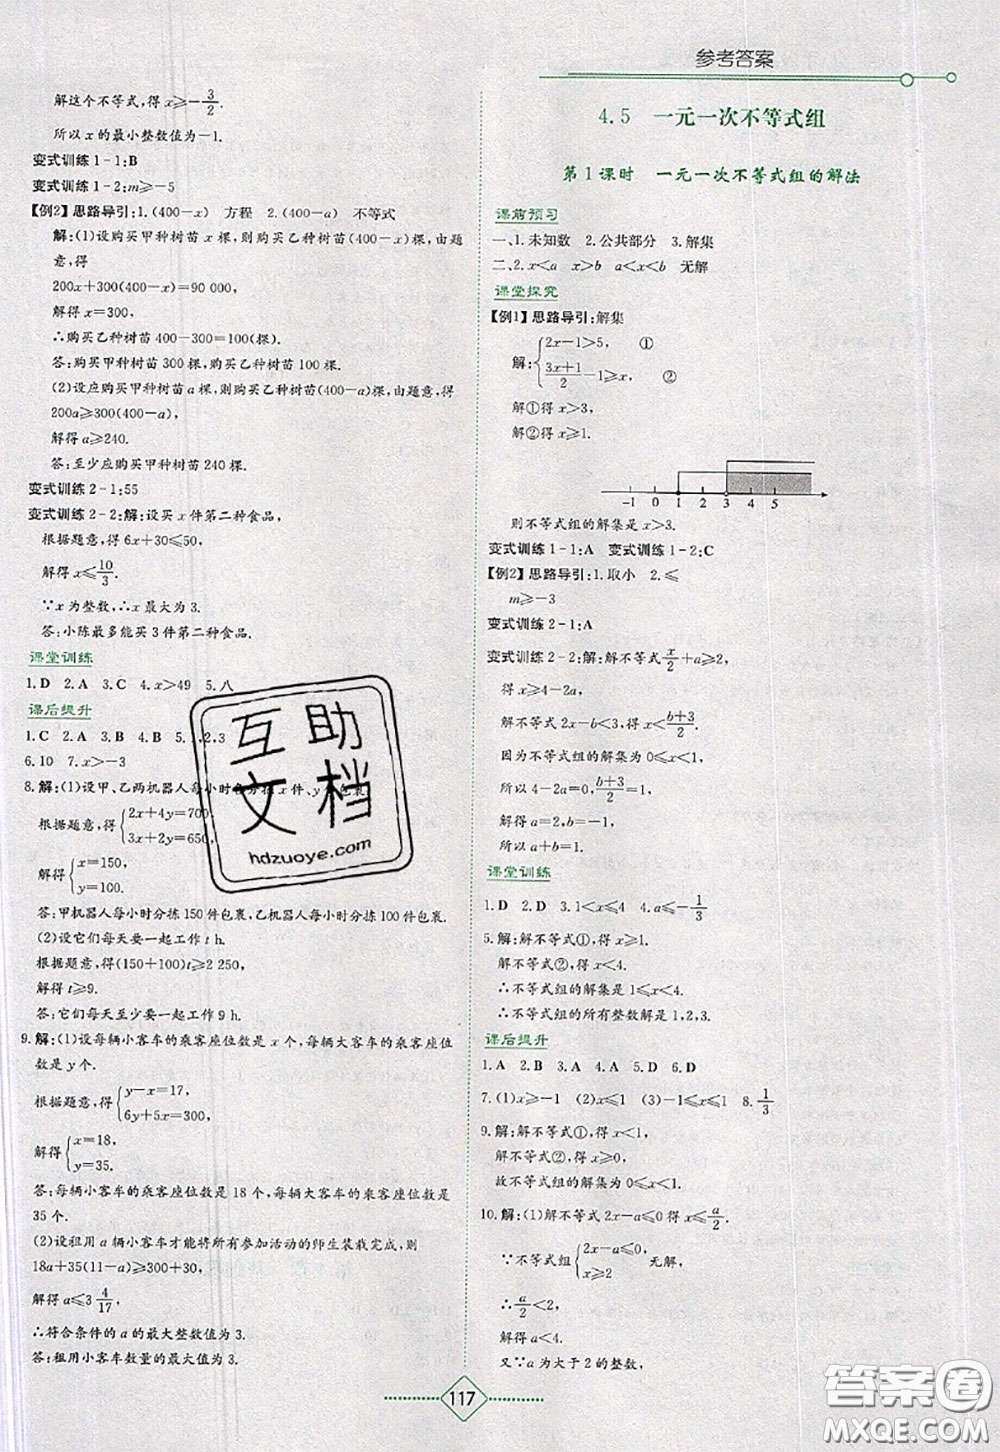 参考答案
解这个不等式,得 x≥-3/2.
所以 x 的最小整数值为-1.
变式训练 1-1:B
变式训练 1-2:m≥-5
【例2】思路导引:1.(400-x) 方程 2.(400-a) 不等式
解:(1)设购买甲种树苗 x 棵,则购买乙种树苗(400-x)棵,由题
意,得
200x+300(400-x)=90 000,
解得 x=300,
∴购买乙种树苗 400-300=100(棵).
答:购买甲种树苗 300 棵,购买乙种树苗 100 棵.
(2)设应购买甲种树苗 a 棵,则购买乙种树苗(400-a)棵,由题意,得
200a≥300(400-a),
解得 a≥240.
答:至少应购买甲种树苗 240 棵.
变式训练 2-1:55
变式训练 2-2:解:设买 x 件第二种食品,
根据题意,得 6x+30≤50,
解得 x≤10/3.
∵x 为整数,∴x 最大为 3.
答:小陈最多能买 3 件第二种食品.
课堂训练
1.D 2.A 3.C 4.x>49 5.八
课后提升
1.C 2.A 3.B 4.B 5.1,2,3
6.10 7.x>-3
8.解:(1)设甲、乙两机器人每小时各分拣 x 件、y 件包裹,
根据题意,得{2x+4y=700,
3x+2y=650,
解得{x=150,
y=100.
答:甲机器人每小时分拣 150 件包裹,乙机器人每小时分拣 100 件包裹.
(2)设它们每天要一起工作 t h.
根据题意,得(150+100)t≥2 250,
解得 t≥9.
答:它们每天至少要一起工作 9 h.
9.解:(1)设每辆小客车的乘客座位数是 x 个,每辆大客车的乘客座位
数是 y 个.
根据题意,得{y-x=17,
6y+5x=300,
解得{x=18,
y=35.
答:每辆小客车的乘客座位数是 18 个,每辆大客车的乘客座位数是
35 个.
(2)设租用 a 辆小客车才能将所有参加活动的师生装载完成,则
18a+35(11-a)≥300+30,
解得 a≤3 4/17,
∴符合条件的 a 的最大整数值为 3.
答:租用小客车数量的最大值为 3.
4.5 一元一次不等式组
第 1 课时 一元一次不等式组的解法
课前预习
一、1.未知数 2.公共部分 3.解集
二、2.x<a x>b a<x<b 无解
课堂探究
【例1】思路导引:解集
解:{2x-1>5, ①
(3x+1)/2-1≥x, ②
解①得 x>3,
解②得 x≥1.
-1 0 1 2 3 4 5
则不等式组的解集是 x>3.
变式训练 1-1:A 变式训练 1-2:C
【例2】思路导引:1.取小 2.≤
m≥-3
变式训练 2-1:A
变式训练 2-2:解:解不等式 x/2+a≥2,
得 x≥4-2a,
解不等式 2x-b<3,得 x<(b+3)/2.
因为不等式组的解集为 0≤x<1,
所以 4-2a=0,(b+3)/2=1,
解得 a=2,b=-1,
所以 a+b=1.
课堂训练
1.D 2.D 3.1<x≤4 4.a≤-1/3
5.解:解不等式①,得 x≥1.
解不等式②,得 x<4.
∴不等式组的解集是 1≤x<4,
∴不等式组的所有整数解是 1,2,3.
课后提升
1.A 2.B 3.A 4.A 5.D 6.D
7.(1)x≥-1 (2)x≤1 (3)-1≤x≤1 8.1/3
9.解:解不等式①,得 x<1,
解不等式②,得 x≥0,
故不等式组的解集为 0≤x<1.
10.解:(1)解不等式 2x-a≤0 得 x≤a/2.
∵不等式组{2x-a≤0,
x≥2
无解,
∴a/2<2,
解得 a<4,
又∵a 为大于 2 的整数,
117
互助
文档
hdzuoye.com
答案圈
MXQE.COM